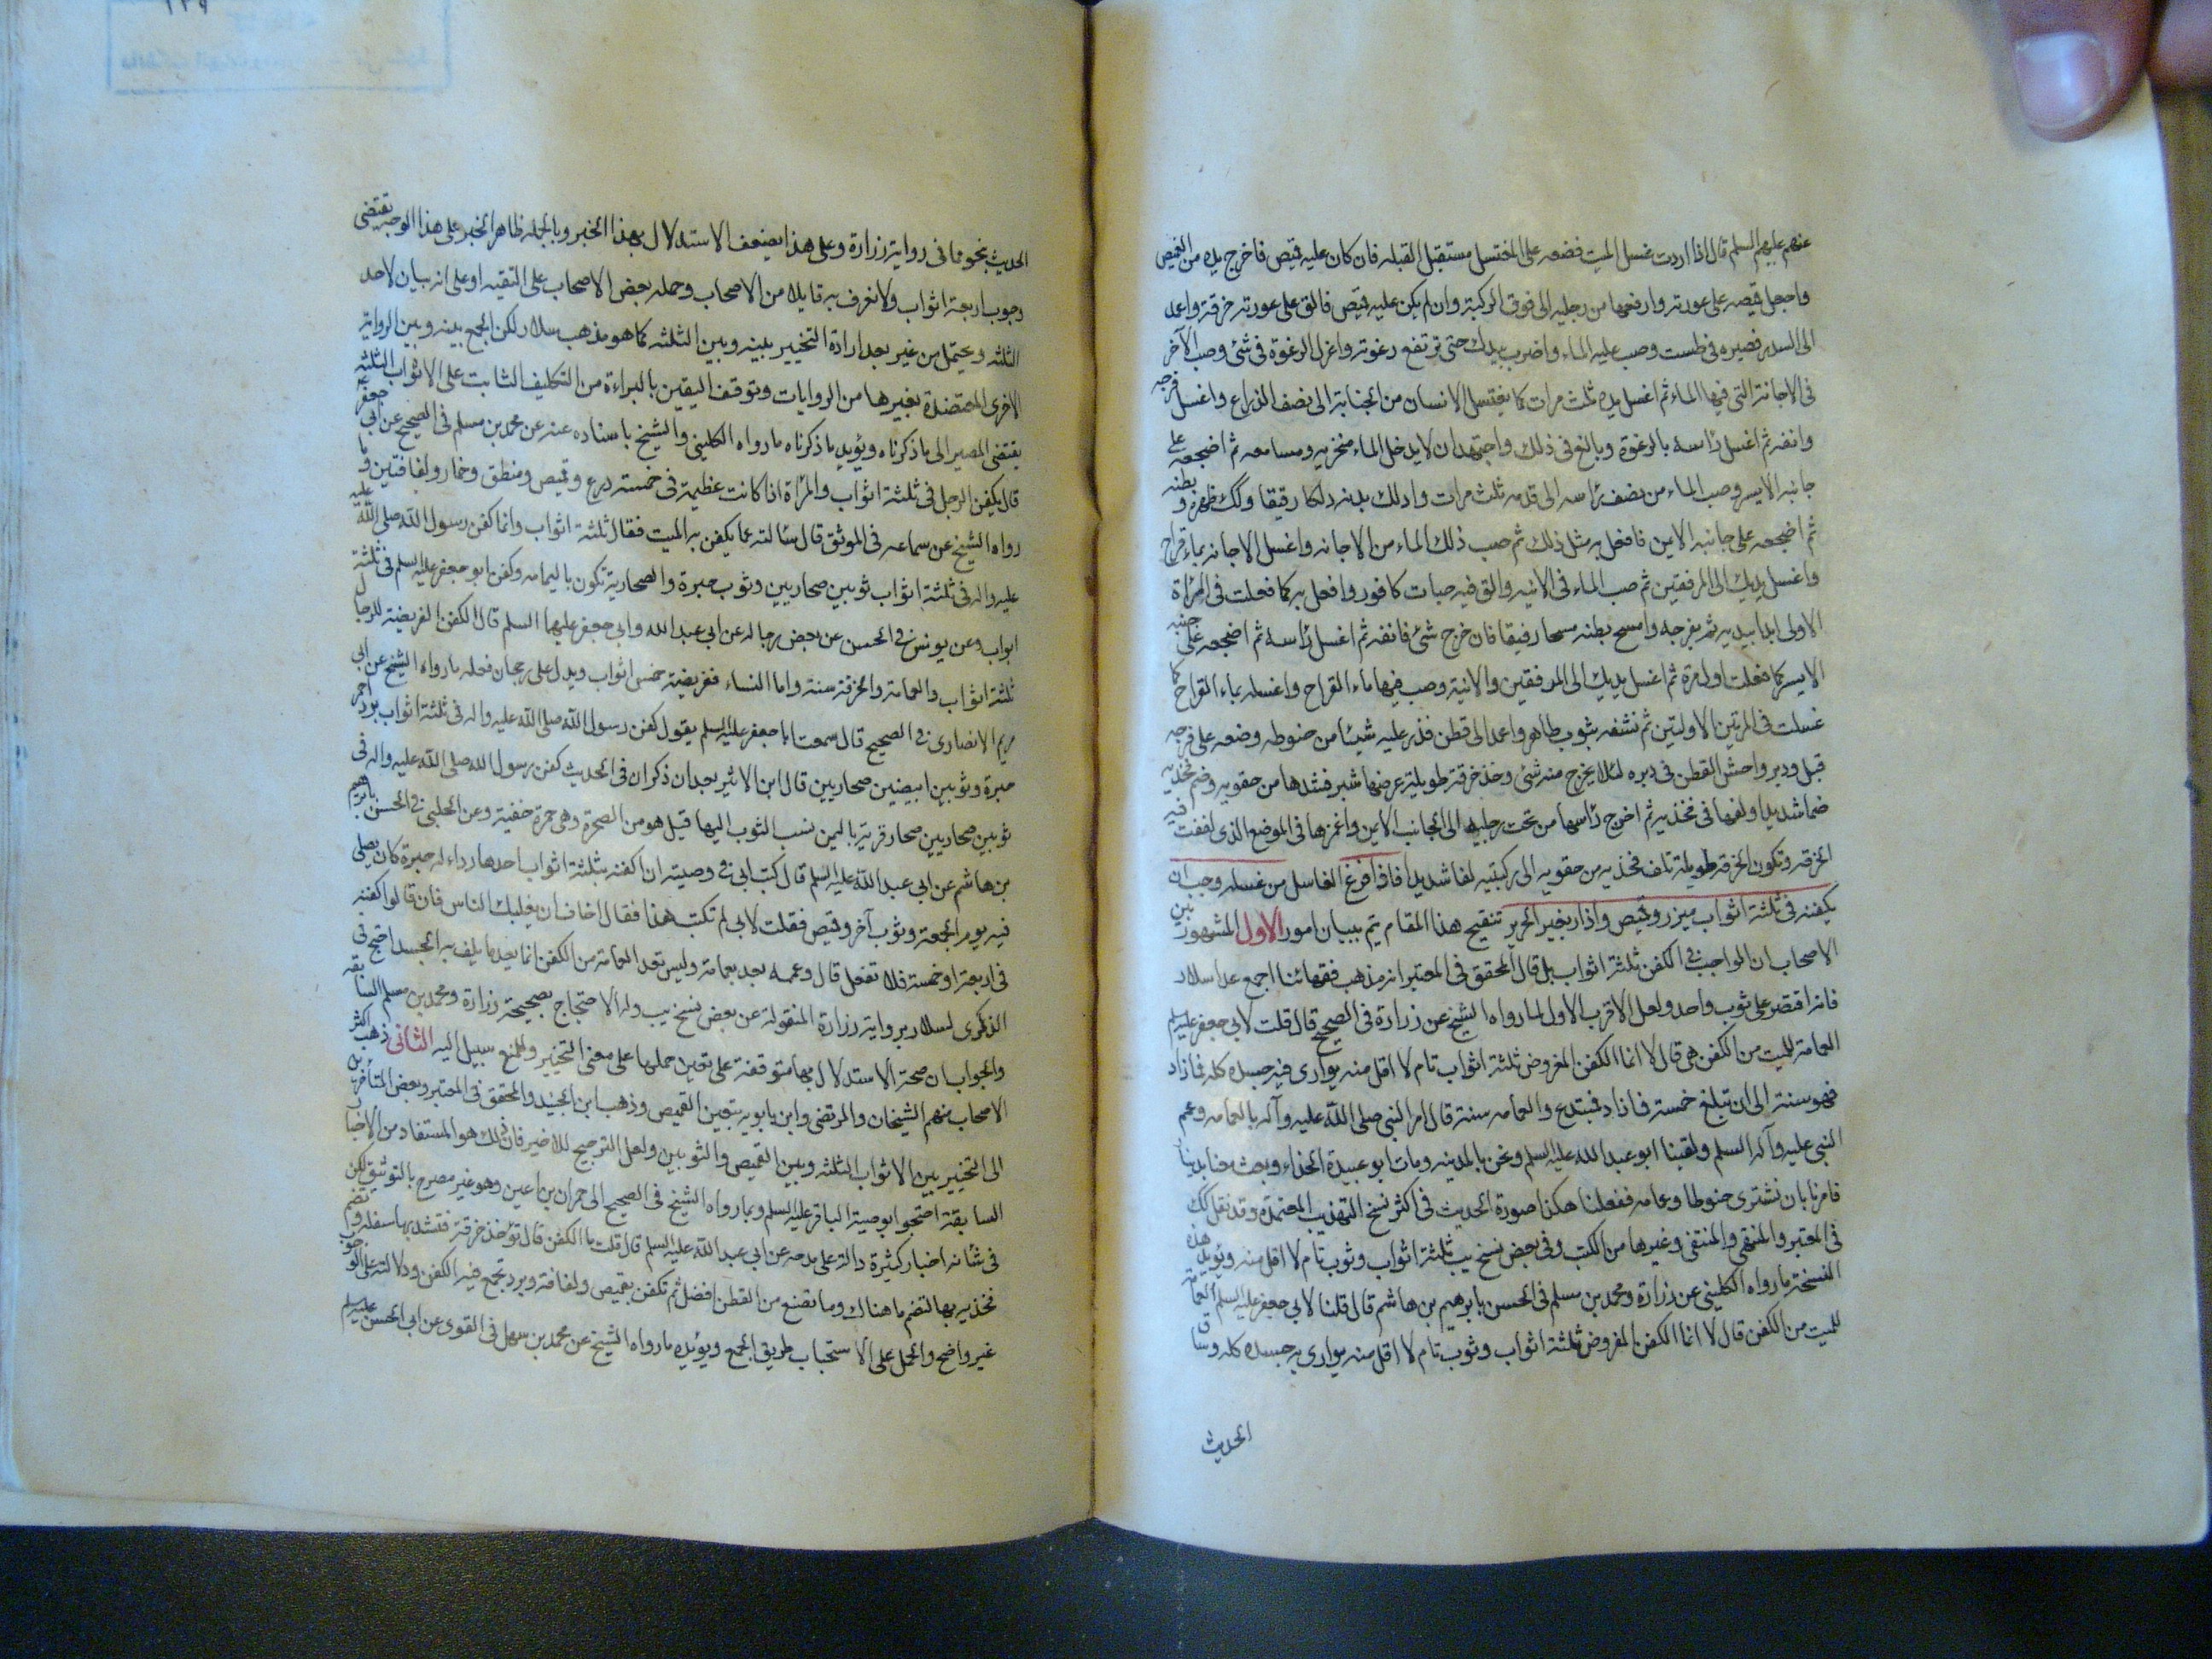 عنهم عليهم السلم قال اذا اردت غسل الميت فضعه على المغتسل مستقبل القبلة فان كان عليه قميص فاخرج يده من القميص
واجعل قميصه على عورته وارفعها من رجليه الى فوق الركبة وان لم يكن عليه قميص فالق على عورته خرقة واعمد
الى السدر فصيره في طست وصب عليه الماء واضرب بيدك حتى ترتفع رغوته واعزل الرغوة في شئ وصب الآخر
في الاجانة التي فيها الماء ثم اغسل يده ثلث مرات كما يغتسل الانسان من الجنابة الى نصف الذراع واغسل فرجه
وانقه ثم اغسل رأسه بالرغوة وبالغ في ذلك واجتهد ان لا يدخل الماء منخريه ومسامعه ثم اضجعه على
جانبه الايسر وصب الماء من نصف رأسه الى قدمه ثلث مرات وادلك بدنه دلكا رفيقا وكك ظهره وبطنه
ثم اضجعه على جانبه الايمن فافعل به مثل ذلك ثم صب ذلك الماء من الاجانه واغسل الاجانه بماء قراح
واغسل يديك الى المرفقين ثم صب الماء في الانيه والق فيه حبات كافور وافعل به كما فعلت في المرأة
الاولى ابدا بيديه ثم بفرجه وامسح بطنه مسحا رفيقا فان خرج شئ فانقه ثم اغسل رأسه ثم اضجعه على جنبه
الايسر كما فعلت اول مرة ثم اغسل يديك الى المرفقين والانية وصب فيها ماء القراح واغسله بماء القراح كما
غسلت في المرتين الاولتين ثم نشفه بثوب طاهر واعمد الى قطن فذر عليه شيئا من حنوطه وضعه على فرجه
قبل ودبر واحش القطن في دبره لئلا يخرج منه شئ وخذ خرقة طويلة عرضها شبر فشدها من حقويه وضم فخذيه
ضما شديدا ولفها في فخذيه ثم اخرج رأسها من تحت رجليه الى الجانب الايمن واغمزها في الموضع الذي لففت فيه
الخرقة وتكون الخرقة طويلة تلف فخذيه من حقويه الى ركبتيه لفا شديدا فاذا فرغ الغاسل من غسله وجب ان
يكفنه في ثلثة اثواب ميزر وقميص وازار بغير الحرير تنقيح هذا المقام يتم ببيان امور الاول المشهور بين
الاصحاب ان الواجب في الكفن ثلثة اثواب بل قال المحقق في المعتبر انه مذهب فقهائنا اجمع عدا سلار
فانه اقتصر على ثوب واحد ولعل الاقرب الاول لما رواه الشيخ عن زرارة في الصحيح قال قلت لابي جعفر عليه السلم
العمامة للميت من الكفن هي قال لا انما الكفن المفروض ثلثة اثواب تام لا اقل منه يوارى فيه جسده كله فما زاد
فهو سنة الى ان تبلغ خمسة فما زاد فمبتدع والعمامه سنة قال امر النبي صلى الله عليه وآله بالعمامه وعم
النبي عليه وآله السلم ولقينا ابو عبد الله عليه السلم ونحن بالمدينه ومات ابو عبيدة الحذاء وبعث معنا بدينار
فامرنا بان نشترى حنوطا وعمامه ففعلنا هكذا صورة الحديث في اكثر نسخ التهذيب المعتمدة وقد نقل كك
في المعتبر والمنتهى والمنتقى وغيرها من الكتب وفي بعض نسخ يب ثلثة اثواب وثوب تام لا اقل منه ويؤيد هذه
النسخة ما رواه الكليني عن زرارة ومحمد بن مسلم في الحسن بابرهيم بن هاشم قال قلنا لابي جعفر عليه السلم العمامة
للميت من الكفن قال لا انما الكفن المفروض ثلثة اثواب وثوب تام لا اقل منه يوارى به جسده كله وساق
الحديث
الحديث بنحو ما في رواية زرارة وعلى هذا يضعف الاستدلال بهذا الخبر وبالجملة ظاهر الخبر على هذا الوجه يقتضى
وجوب اربعة اثواب ولا نعرف به قايلا من الاصحاب وحمله بعض الاصحاب على التقيه او على انه بيان لاحد
الثلثه ويحتمل من غير بعد ارادة التخيير بينه وبين الثلثه كما هو مذهب سلار لكن الجمع بينه وبين الرواية
الاخرى المعتضدة بغيرها من الروايات وتوقف اليقين بالبراءة من التكليف الثابت على الاثواب الثلثه
يقتضى المصير الى ما ذكرناه ويؤيد ما ذكرناه ما رواه الكليني والشيخ باسناده عنه عن محمد بن مسلم في الصحيح عن ابي جعفر
قال يكفن الرجل في ثلثة اثواب والمرأة اذا كانت عظيمة في خمسة درع وقميص ومنطق وخمار ولفافتين وما
رواه الشيخ عن سماعه في الموثق قال سألته عما يكفن به الميت فقال ثلثة اثواب وانما كفن رسول الله صلى الله عليه
عليه واله في ثلثة اثواب ثوبين صحاريين وثوب حبرة والصحارية تكون باليمامه وكفن ابو جعفر عليه السلم في ثلثة
ابواب وعن يونس في الحسن عن بعض رجاله عن ابي عبد الله وابي جعفر عليهما السلم قال الكفن الفريضة للرجال
ثلثة اثواب والعمامة والخرقة سنة واما النساء ففريضة خمس اثواب ويدل على رجحان فعله ما رواه الشيخ عن ابي
مريم الانصارى في الصحيح قال سمعت ابا جعفر عليه السلم يقول كفن رسول الله صلى الله عليه واله في ثلثة اثواب برد احمر
حبرة وثوبين ابيضين صحاريين قال ابن الاثير بعد ان ذكر ان في الحديث كفن رسول الله صلى الله عليه واله في
ثوبين صحاريين صحار قرية باليمن نسب الثوب اليها قيل هو من الصحرة وهي حمرة خفية وعن الحلبي في الحسن بابرهيم
بن هاشم عن ابي عبد الله عليه السلم قال كتب ابي في وصيته ان اكفنه بثلثة اثواب احدها رداء له حبرة كان يصلى
فيه يوم الجمعة وثوب آخر وقميص فقلت لابي لم تكتب هذا فقال اخاف ان يغلبك الناس فان قالوا كفنه
في اربعة او خمسة فلا تفعل قال وعمه بعد بعمامة وليس تعد العمامة من الكفن انما يعد ما يلف به الجسد احتج في
الذكرى لسلار برواية زرارة المنقولة عن بعض نسخ يب وله الاحتجاج بصحيحة زرارة ومحمد بن مسلم السابقه
والجواب ان صحة الاستدلال بها متوقفة على تعين حملها على معنى التخيير وللمنع سبيل اليه الثانى ذهب اكثر
الاصحاب منهم الشيخان والمرتضى وابن بابويه بتعين القميص وذهب ابن الجنيد والمحقق في المعتبر وبعض المتأخرين
الى التخيير بين الاثواب الثلثه وبين القميص والثوبين ولعل الترجيح للاخير فان ذلك هو المستفاد من الاخبار
السابقة احتجوا بوصية الباقر عليه السلم وبما رواه الشيخ في الصحيح الى حمران بن اعين وهو غير مصرح بالتوثيق لكن
في شأنه اخبار كثيرة دالة على مدحه عن ابي عبد الله عليه السلم قال قلت ما الكفن قال تؤخذ خرقة فتشد بها سفله وتضم
فخذيه بها لتضم ما هناك وما تصنع من القطن افضل ثم تكفن بقميص ولفافة وبرد تجمع فيه الكفن ودلالته على الوجوب
غير واضح والحمل على الاستحباب طريق الجمع ويؤيده ما رواه الشيخ عن محمد بن سهل في القوى عن ابي الحسن عليه السلم